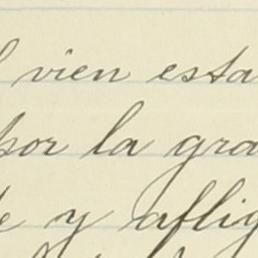 l vien esta
por la gra
e y aflig